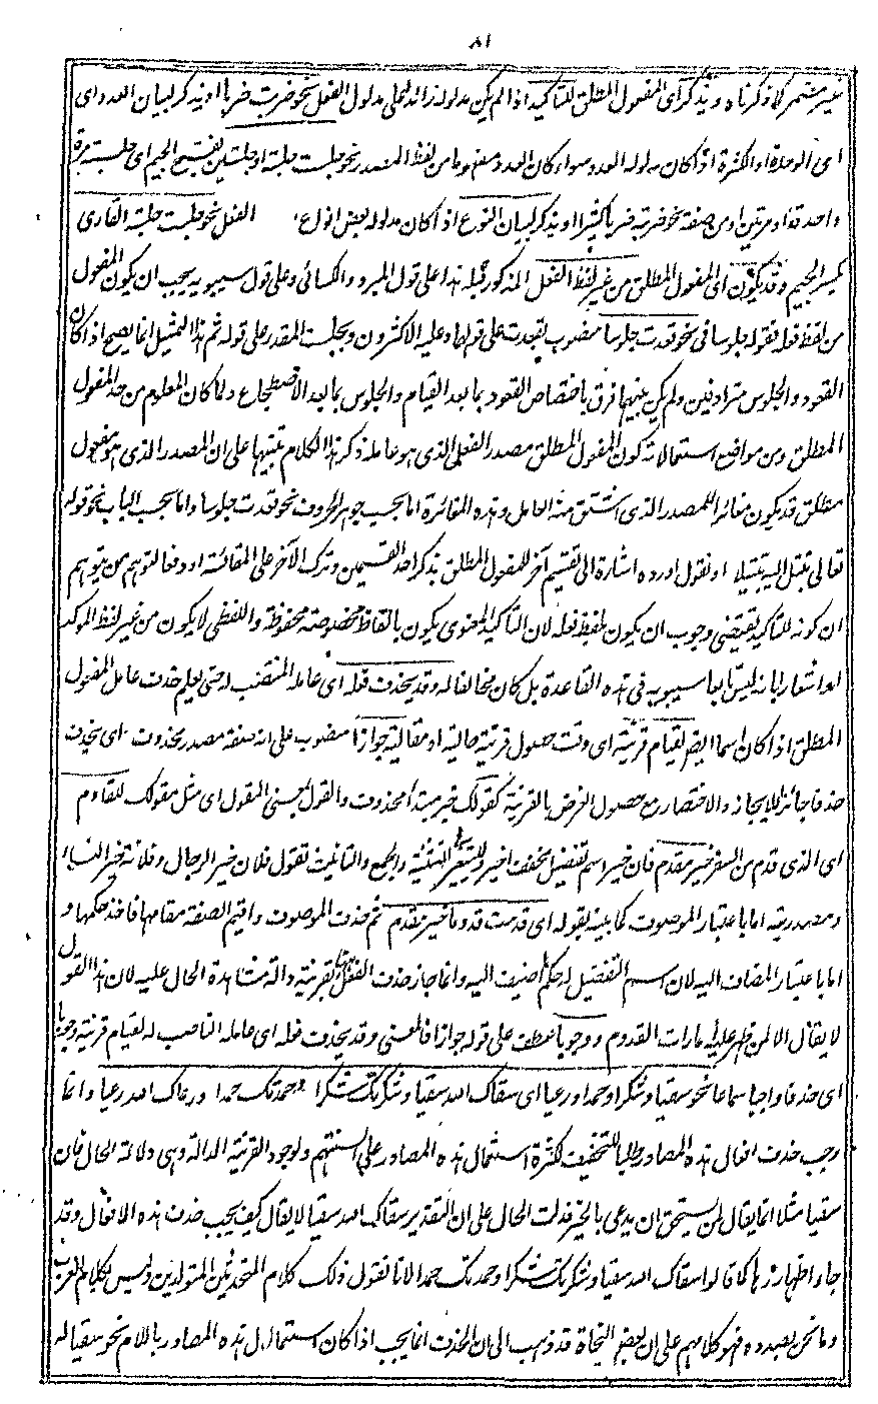 ٨١
غير مستمر كما ذكرناه ويذكر أي المفعول المطلق للتأكيد اذا لم يكن مدلوله زائدا على مدلول الفعل نحو ضربت ضربا او يذكر لبيان العدد اي
اي الوحدة او الكثرة اذا كان مدلوله العدد سواء كان العدد مفهوما من لفظ المصدر نحو جلست جلسة او جلستين بفتح الجيم اي جلسة مرة
واحدة او مرتين او من صفته نحو ضربته ضربا كثيرا او يذكر لبيان النوع اذا كان مدلوله بعض انواع الفعل نحو جلست جلسة القارى
بكسر الجيم وقد يكون اى المفعول المطلق من غير لفظ الفعل المذكور قبله هذا على قول المبرد والكسائى وعلى قول سيبويه يجب ان يكون المفعول
من لفظ فعله فقوله جلوسا فى نحو قعدت جلوسا منصوب بقعدت على قولهما وعليه الاكثرون وبجلست المقدر على قوله ثم هذا التمثيل انما يصح اذا كان
القعود والجلوس مترادفين ولم يكن بينهما فرق باختصاص القعود بما بعد القيام والجلوس بما بعد الاضطجاع ولما كان المعلوم من حد المفعول
المطلق ومن مواقع استعمالاته كون المفعول المطلق مصدر الفعل الذى هو عامله ذكر هذا الكلام تنبيها على ان المصدر الذى هو مفعول
مطلق قد يكون مغائرا للمصدر الذى اشتق منه العامل وهذه المغائرة اما بحسب جوهر الحروف نحو قعدت جلوسا واما بحسب الباب نحو قوله
تعالى تبتل اليه تبتيلا او نقول اورده اشارة الى تقسيم آخر للمفعول المطلق بذكر احد القسيمين وترك الآخر على المقائسة او دفعا لتوهم من يتوهم
ان كونه للتأكيد يقتضى وجوب ان يكون بلفظ فعله لان التأكيد المعنوى يكون بالفاظ مخصوصة محفوظة واللفظى لا يكون من غير لفظ الموكد
او اشعارا بانه ليس تابعا سيبويه فى هذه القاعدة بل كان مخالفا له وقد يحذف فعله اى عامله المنتصب له حتى يعلم حذف عامل المفعول
المطلق اذا كان اسما ايضا لقيام قرينة اى وقت حصول قرينة حالية او مقالية جوازا منصوب على انه صفة مصدر محذوف اى يحذف
حذفا جائزا للايجاز والاختصار مع حصول الغرض بالقرينة كقولك خبر مبتدأ محذوف والقول بمعنى المقول اى مثل مقولك للقادم
اى الذى قدم من السفر خير مقدم فان خير اسم تفضيل مخفف اخير ولم يتغير للتثنية والجمع والتأنيث تقول فلان خير الرجال وفلانة خير النساء
ومصدريته اما باعتبار الموصوف كما بينه بقوله اى قدمت قدوما خير مقدم ثم حذف الموصوف واقيم الصفة مقامها فاخذ حكمها و
اما باعتبار المضاف اليه لان اسم التفضيل له حكم ما اضيف اليه وانما جاز حذف الفعل هنا بقرينة دالة مشاهدة الحال عليه لان هذا القول
لا يقال الا لمن ظهر عليه امارات القدوم ووجوبا عطف على قوله جوازا فالمعنى وقد يحذف فعله اى عامله الناصب له لقيام قرينة وجوبا
اى حذفا واجبا سماعا نحو سقيا وشكرا وحمدا ورعيا اى سقاك الله سقيا وشكرتك شكرا وحمدتك حمدا ورعاك الله رعيا وانما
وجب حذف افعال هذه المصادر طلبا للتخفيف لكثرة استعمال هذه المصادر على السنتهم ولوجود القرينة الدالة وهى دلالة الحال فان
سقيا مثلا انما يقال لمن يستحق ان يدعى بالخير فدلت الحال على ان التقدير سقاك الله سقيا لا يقال كيف يجب حذف هذه الافعال وقد
جاء اظهارها كما قالوا سقاك الله سقيا وشكرتك شكرا وحمدتك حمدا لانا نقول ذلك كلام المتحدثين المتولدين وليس بكلام العرب
وما نحن بصدده فهو كلامهم على ان بعض النحاة قد ذهب الى ان الحذف انما يجب اذا كان استعمال هذه المصادر باللام نحو سقيا له